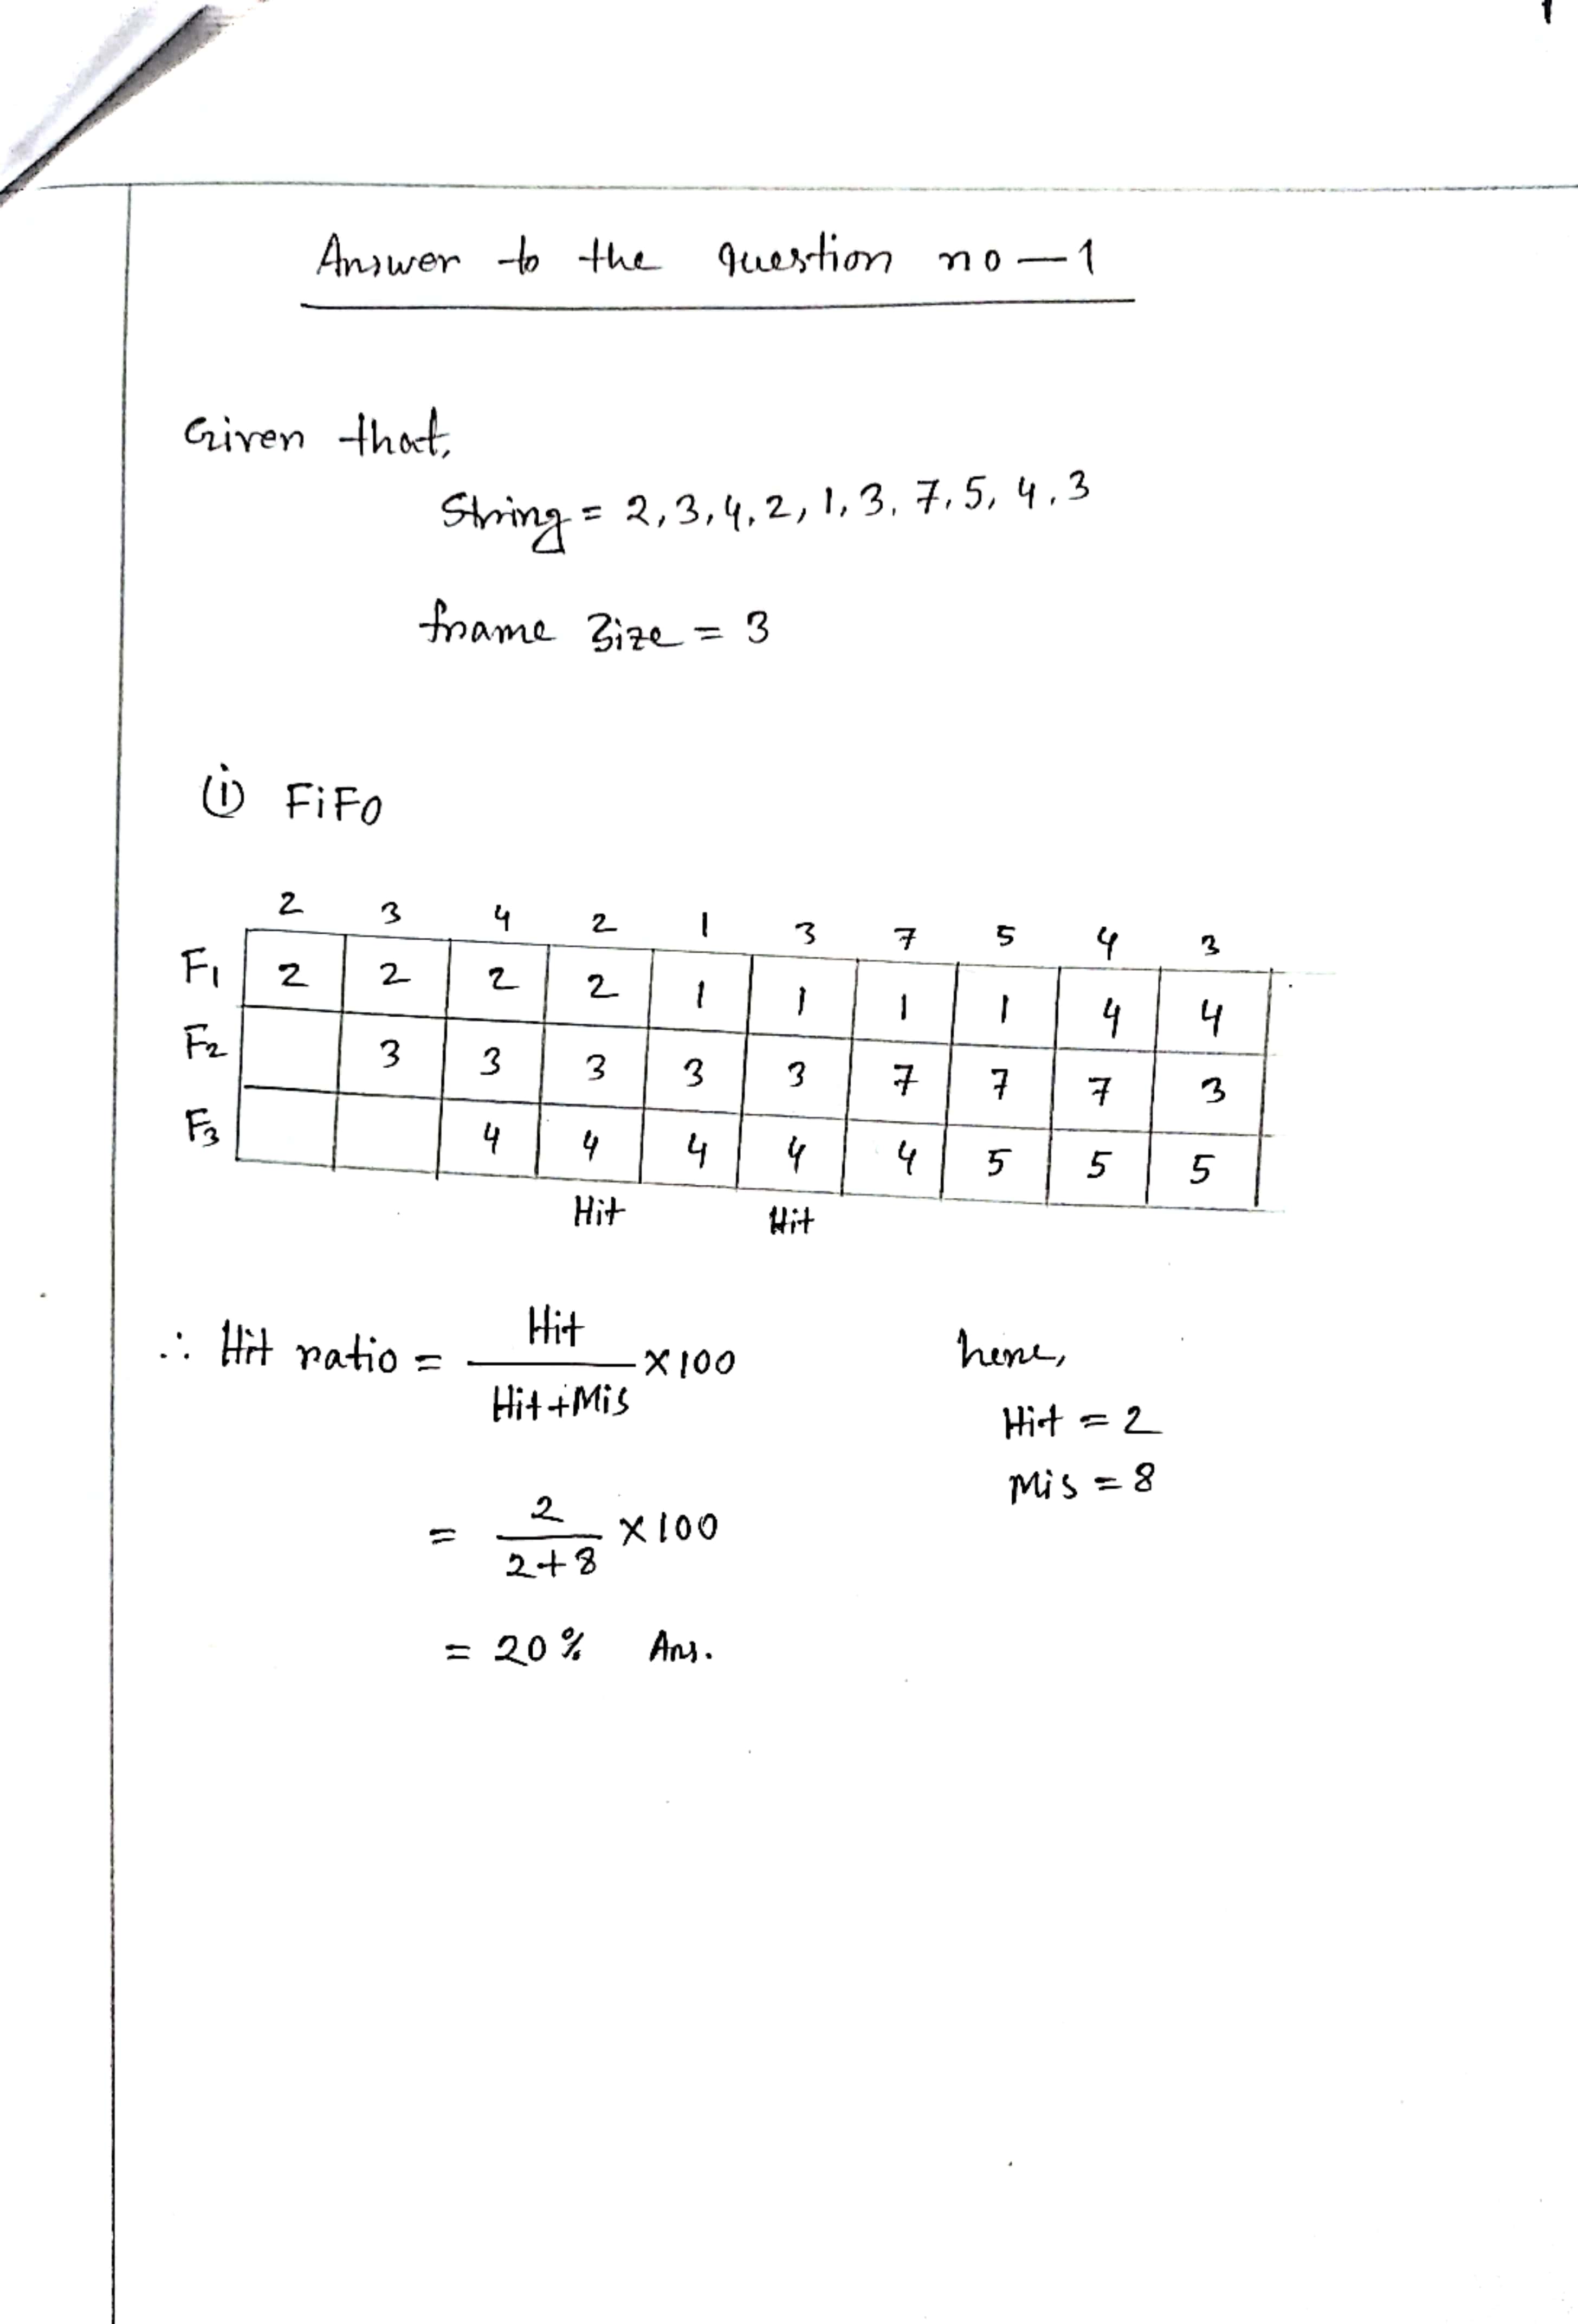 1
Answer to the question no — 1
Given that,
String = 2, 3, 4, 2, 1, 3, 7, 5, 4, 3
frame size = 3
(i) FiFo
2 3 4 2 1 3 7 5 4 3
F1 2 2 2 2 1 1 1 1 4 4
F2 3 3 3 3 3 7 7 7 3
F3 4 4 4 4 4 5 5 5
Hit Hit
∴ Hit ratio = Hit / Hit + Mis × 100 here,
Hit = 2
Mis = 8
= 2 / 2 + 8 × 100
= 20 % Ans.